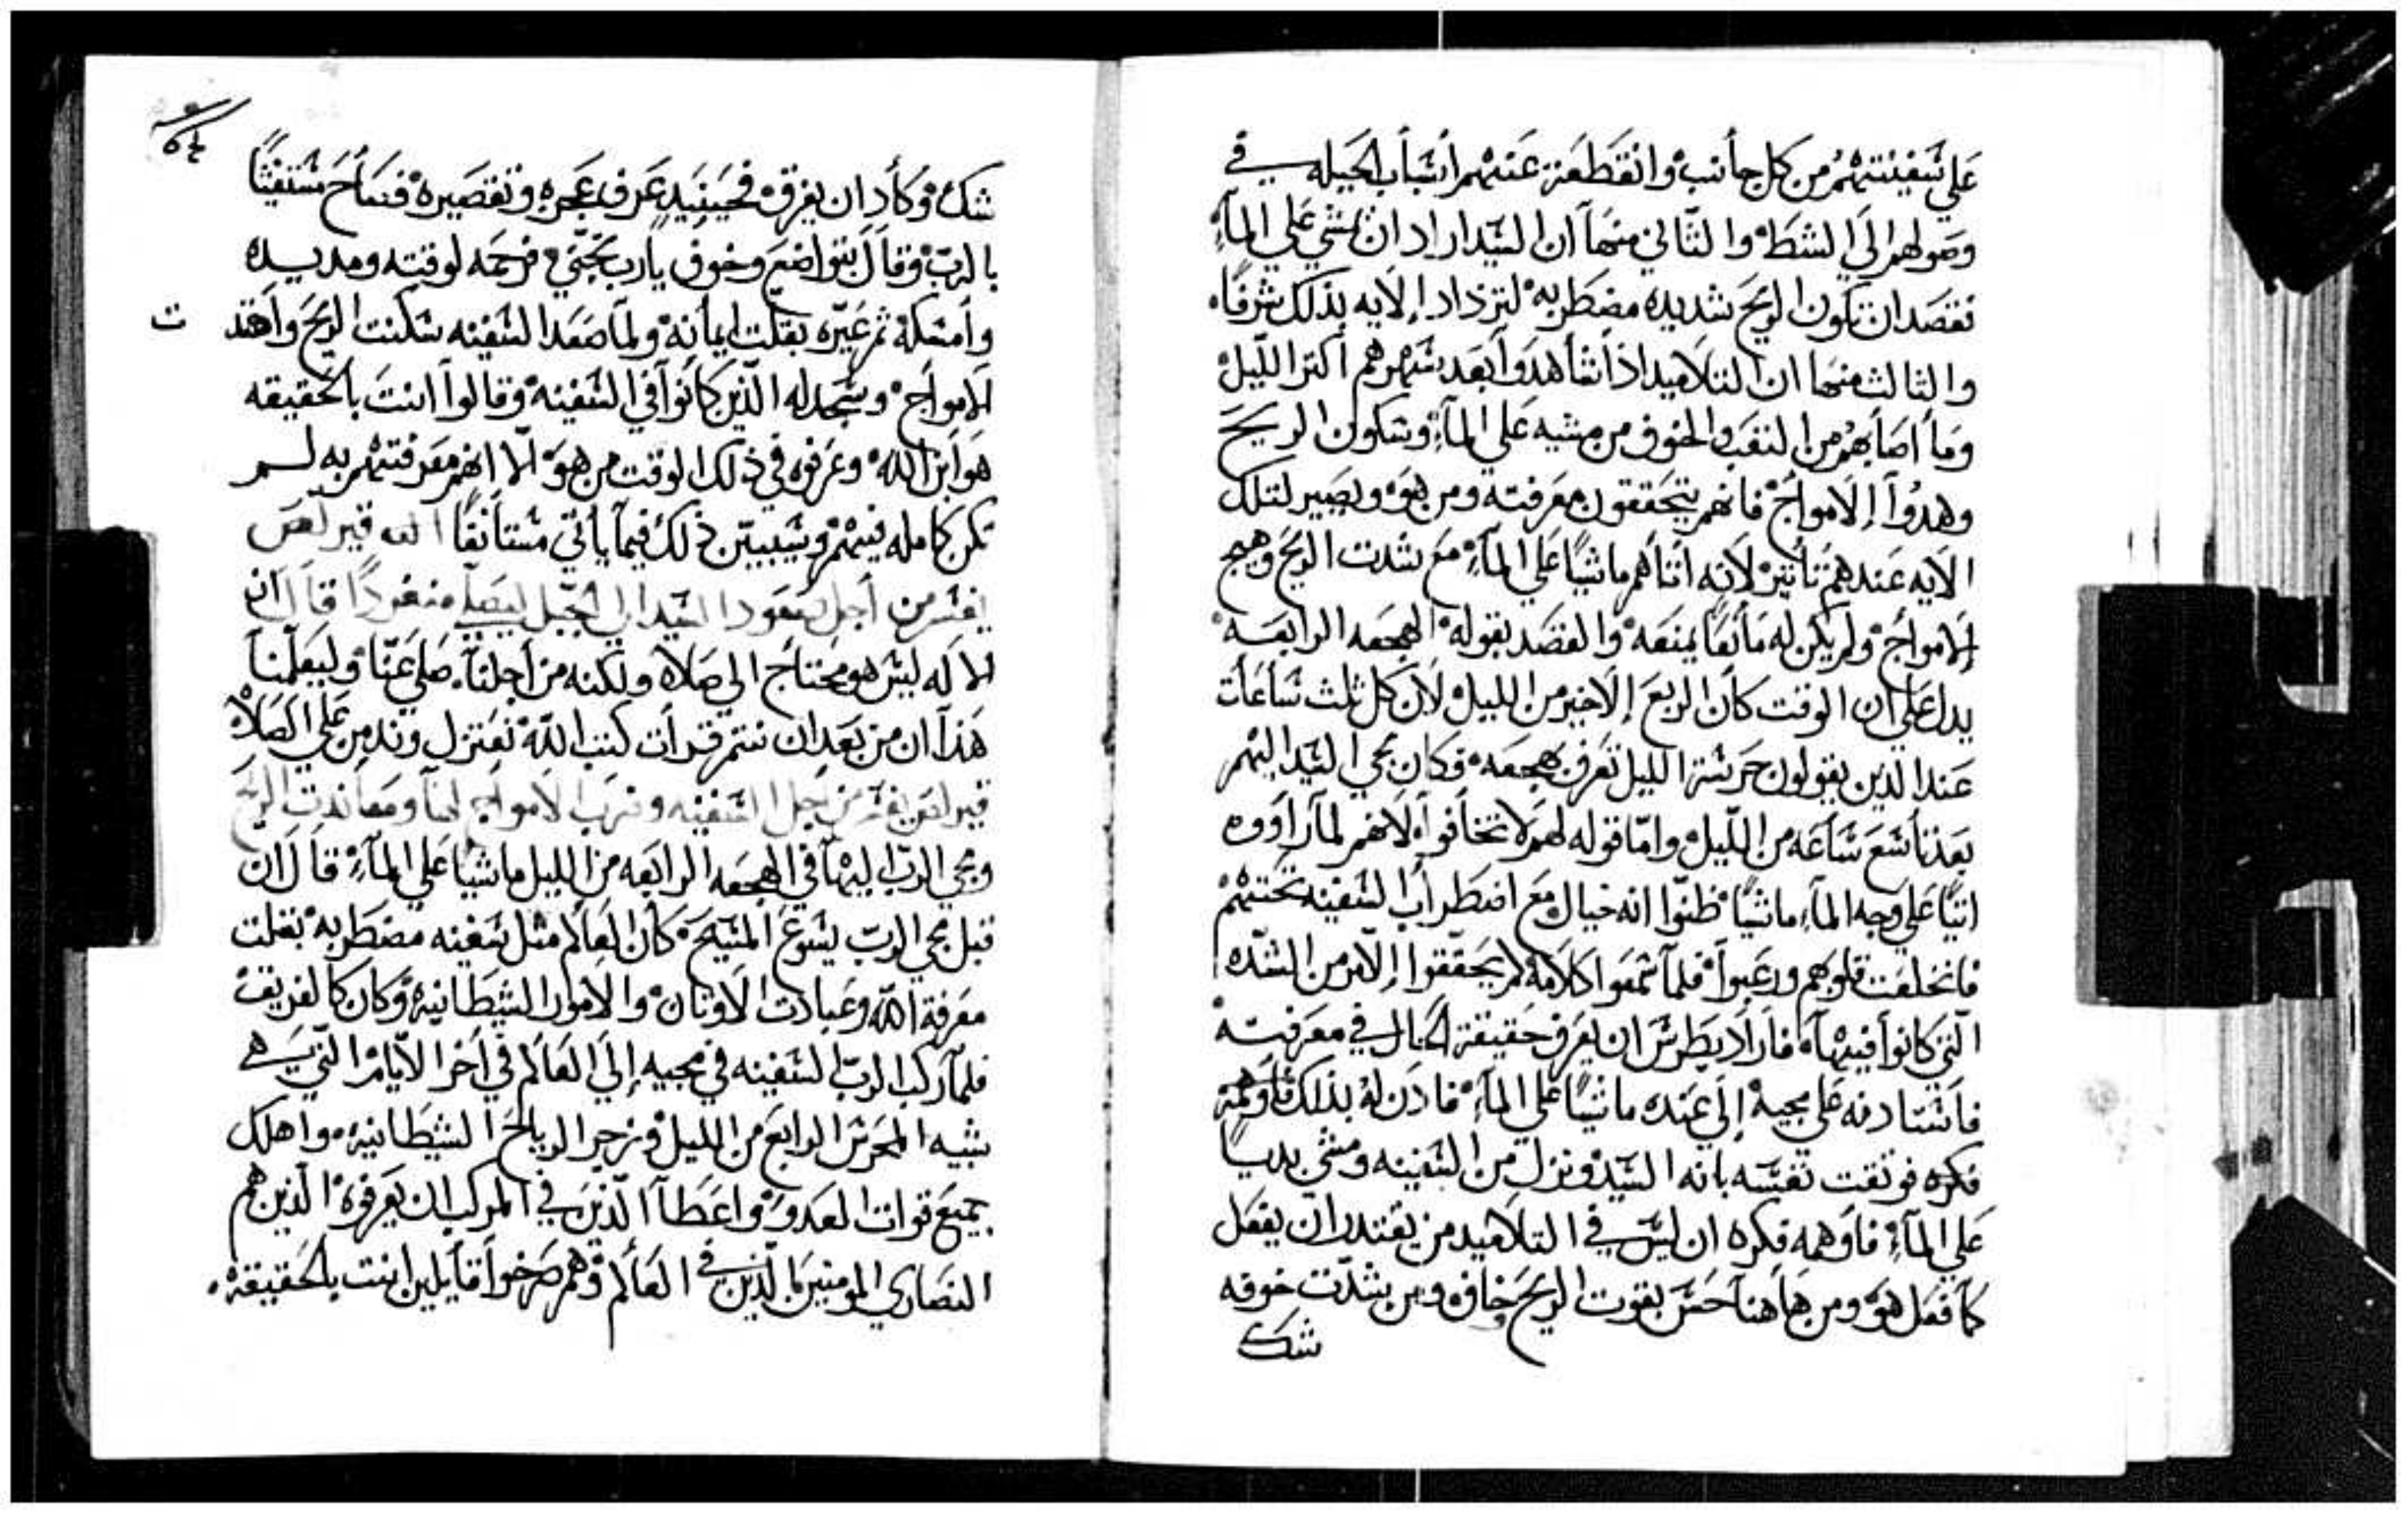 علي سفينتهم من كل جانب وانقطعة عنهم اسباب الحيله في
وصولهم الي الشط والثاني منها ان السيد اراد ان يمشي علي المآء
فقصد ان تكون الريح شديده مضطربه لتزداد الايه بذلك شرفًا
والثالث منها ان التلاميد اذا شاهدوا بعد سهرهم اكتر الليل
وما اصابهم من التعب والخوف من مشيه علي المآء وسكون الريح
وهدوا الامواج فانهم يتحققون معرفته ومن هو ويصير لتلك
الايه عندهم تأتير لانه اتاهم ماشيًا علي المآء مع شدت الريح وهيج
الامواج ولم يكن له مانعًا يمنعه والقصد بقوله الهجعه الرابعه
يدل علي ان الوقت كان الربع الاخير من الليل لان كل ثلث ساعات
عند الذين يقولون حرسة الليل تعرف بهجعه فكان مجي السيد اليهم
بعد تاسع ساعه من الليل واما قوله لهم لا تخافوا لانهم لما راووه
اتيًا علي وجه المآء ماشيًا ظنوا انه خيال مع اضطراب السفينه تحتهم
فانخلعت قلوبهم ورعبوا فلما سمعوا كلامه لم يحققوا الامر من الشده
التي كانوا فيها فاراد بطرس ان يعرف حقيقة الحال في معرفته
فاستادنه علي مجيه الي عنده ماشيًا علي المآء فادن له بذلك فاوهمة
فكره فوتقت نفسه بانه السيد ونزل من السفينه ومشي يديبًا
علي المآء فاوهمه فكره ان ليس في التلاميد من يقتدر ان يفعل
كما فعل هو ومن هاهنا حس بقوت الريح وخاف ومن شدت خوفه
شك
شك وكاد ان يغرق فحينيد عرف عجزه وتقصيره فصاح مستغيثًا
بالرب وقال بتواضع وخوف يارب نجني فرحمه لوقته ومد يده
وامسكه ثم عيره بقلت ايمانه ولما صعد السفينه سكنت الريح واهتد ت
الامواج وسجد له الذين كانوا في السفينه وقالوا انت بالحقيقه
هو ابن الله وعرفوه في ذلك الوقت من هو الا انهم معرفتهم به لم
تكن كامله فيهم وسيبين ذلك فيما ياتي مستانفًا قيرلص
يفسر من اجل صعود السيد الي الجبل ليصلي منفردًا قال ان
الاله ليس هو محتاج الي صلاه ولكنه من اجلنا صلي عنا وليعلمنا
هذا ان من بعد ان نتم قرات كتب الله نعتزل وندمن علي الصلاه
قيرلص يفسر من اجل السفينه وضرب الامواج لها ومعاندت الريح
ومجي الرب اليها في الهجعه الرابعه من الليل ماشيًا علي المآء قال ان
قبل مجي الرب يسوع المسيح كان العالم مثل سفينه مضطربه بقلت
معرفة الله وعبادت الاوتان والامور الشيطانيه وكان كالغريق
فلما ركب الرب السفينه في مجيه الي العالم في اخر الايام التي هي
شبيه المحرس الرابع من الليل وزجر الرياح الشيطانيه واهلك
جميع قوات العدو واعطا الذين في المركب ان يعرفوه الذين هم
النصاري المومنين بالذين في العالم وهم صرخوا قايلين انت بالحقيقة